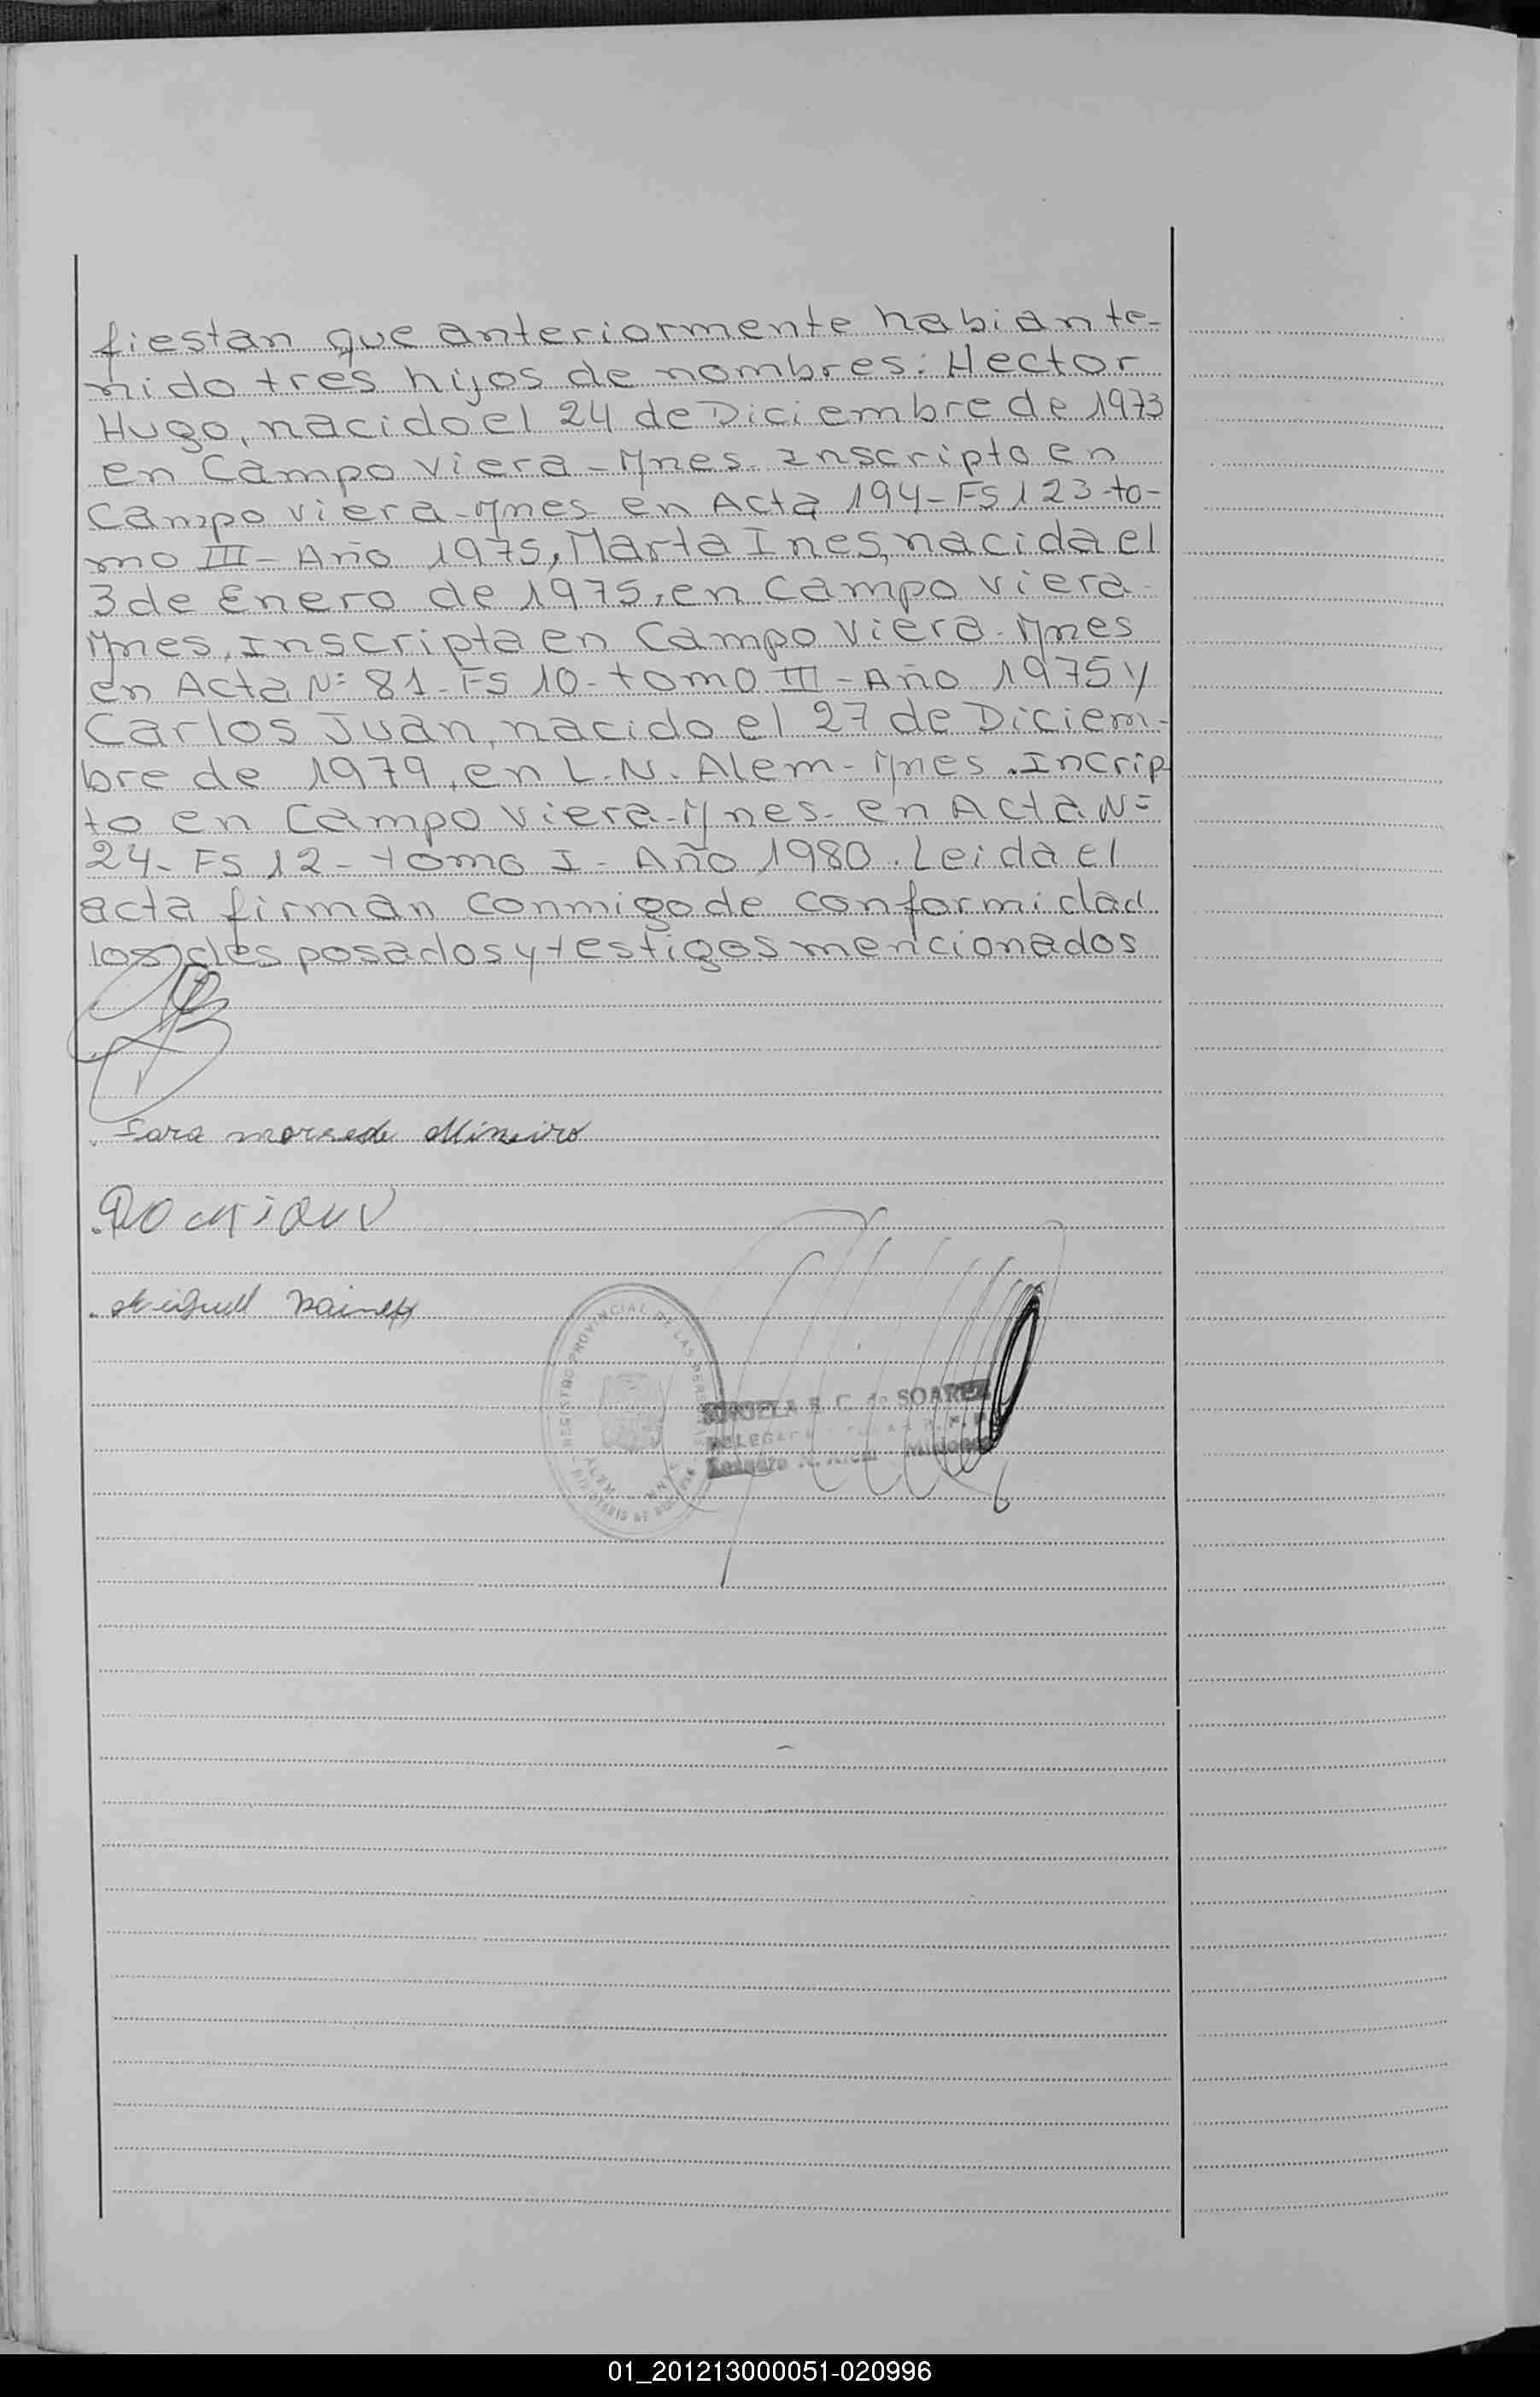 fiestan que anteriormente habian te-
nido tres hijos de nombres: Hector
Hugo, nacido el 24 de Diciembre de 1973
en Campo Viera - Mnes. Inscripto en
Campo Viera - Mnes en Acta 194 - FS 123 - to-
mo III - Año 1975, Marta Ines, nacida el
3 de Enero de 1975, en Campo Viera -
Mnes, Inscripta en Campo Viera - Mnes
en Acta Nº 81 - FS 10 - tomo III - Año 1975 y
Carlos Juan, nacido el 27 de Diciem-
bre de 1979, en L. N. Alem - Mnes. Incrip
to en Campo Viera - Mnes - en Acta Nº
24 - FS 12 - tomo I - Año 1980. Leida el
acta firman conmigo de conformidad
los desposados y testigos mencionados
Sara mersede Mineiro
REGISTRO PROVINCIAL DE LAS PERSONAS
ALEM MNES
MINISTERIO DE GOBIERNO
R. C. de SOAREZ
Leandro N. Alem - Misiones
01_201213000051-020996